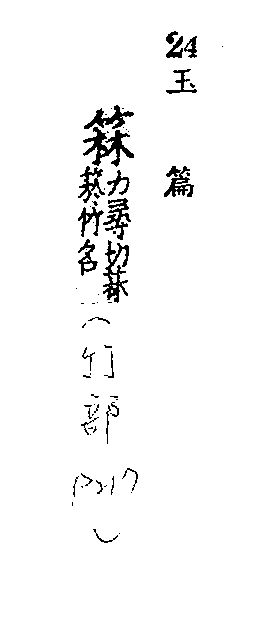 24 玉篇
箖力尋切箖
箊竹名
(竹部 P217)